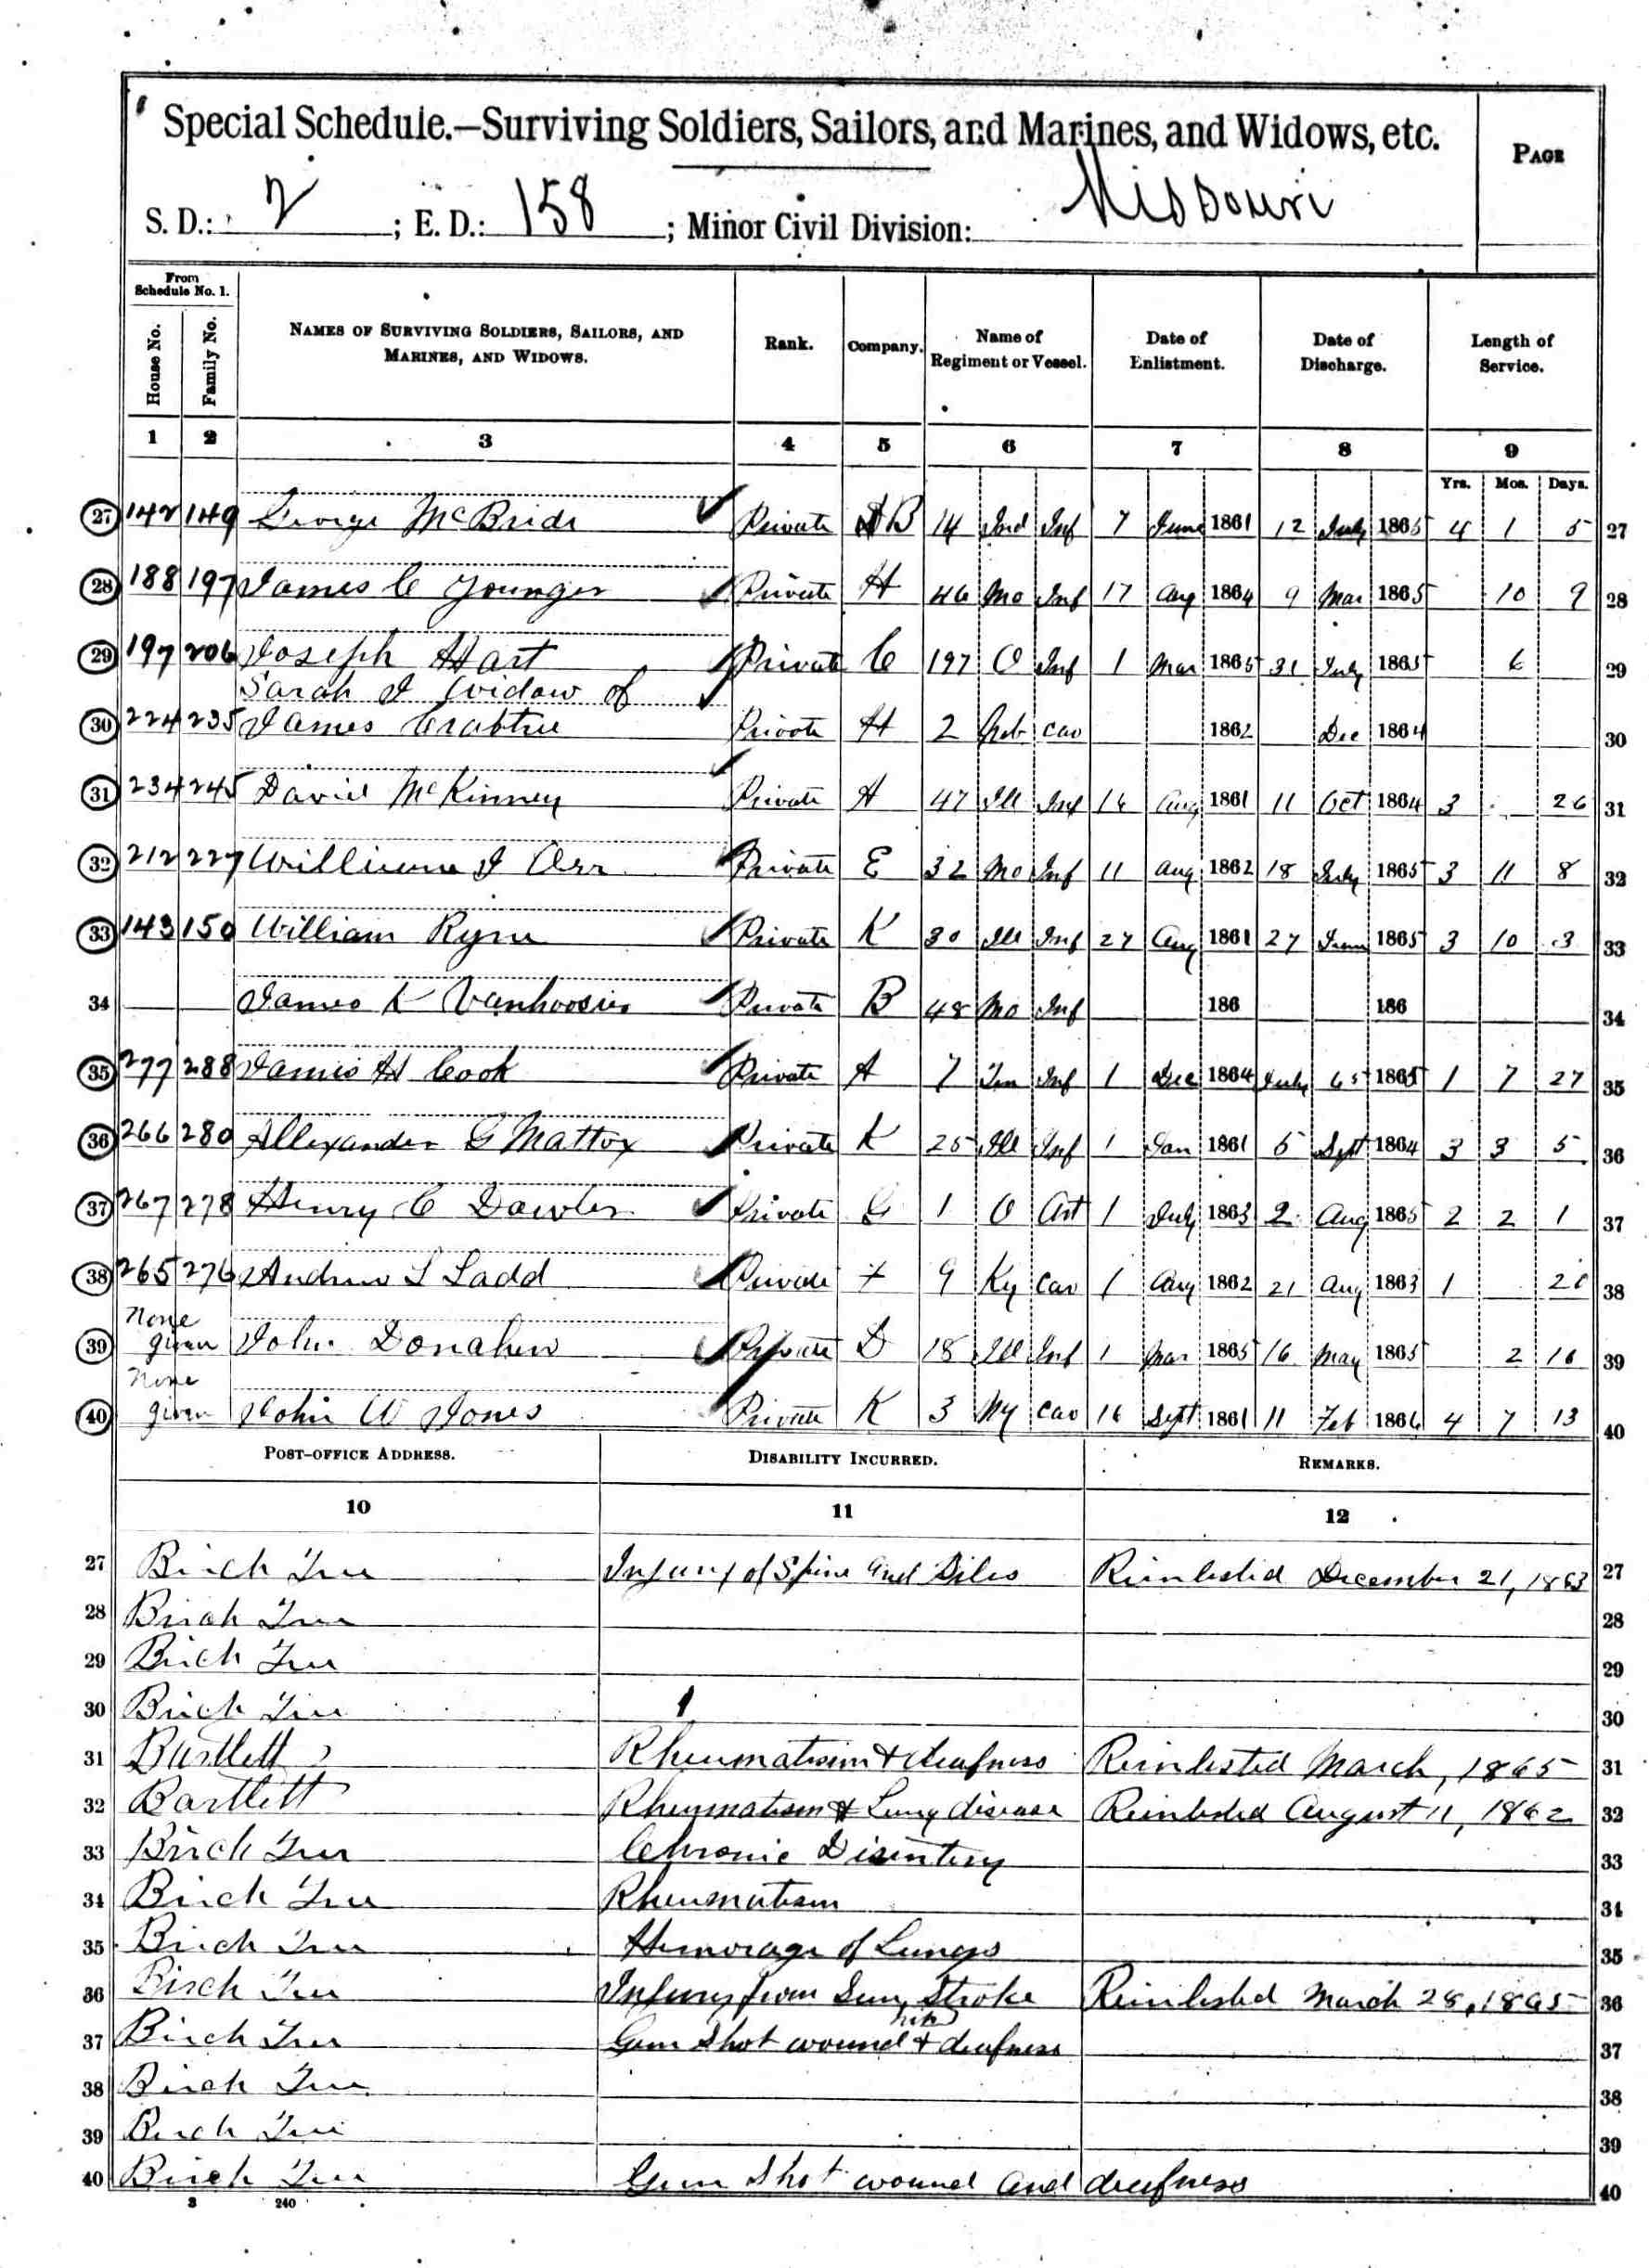 Special Schedule.—Surviving Soldiers, Sailors, and Marines, and Widows, etc.
PAGE
S. D.: 2 ; E. D.: 158 ; Minor Civil Division: Missouri
From Schedule No. 1.
House No. Family No. NAMES OF SURVIVING SOLDIERS, SAILORS, AND MARINES, AND WIDOWS. Rank. Company. Name of Regiment or Vessel. Date of Enlistment. Date of Discharge. Length of Service.
1 2 3 4 5 6 7 8 9
Yrs. Mos. Days.
27 142 149 George McBride Private B 14 Ind Inf 7 June 1861 12 July 1865 4 1 5 27
28 188 197 James C Younger Private H 46 Mo Inf 17 Aug 1864 9 Mar 1865 10 9 28
29 197 206 Joseph Hart Private C 197 O Inf 1 Mar 1865 31 July 1865 6 29
Sarah J Widow of
30 224 235 James Crabtree Private H 2 Neb Cav 1862 Dec 1864 30
31 234 245 David McKinney Private A 47 Ill Inf 16 Aug 1861 11 Oct 1864 3 26 31
32 212 227 William J Orr Private E 32 Mo Inf 11 Aug 1862 18 July 1865 3 11 8 32
33 143 150 William Ryne Private K 30 Ill Inf 27 Aug 1861 27 June 1865 3 10 3 33
34 James K Vanhoosier Private B 48 Mo Inf 186 186 34
35 277 288 James H Cook Private A 7 Ten Inf 1 Dec 1864 July 65 1865 1 7 27 35
36 266 280 Allexander G Mattox Private K 25 Ill Inf 1 Jan 1861 5 Sept 1864 3 3 5 36
37 267 278 Henry C Dawler Private G 1 O Art 1 July 1863 2 Aug 1865 2 2 1 37
38 265 276 Andrew L Ladd Private 9 Ky Cav 1 Aug 1862 21 Aug 1863 1 38
None
39 given John Donahew Private D 18 Ill Inf 1 Mar 1865 16 May 1865 2 16 39
None
40 given John W Jones Private K 3 Ny Cav 16 Sept 1861 11 Feb 1866 4 7 13 40
POST-OFFICE ADDRESS. DISABILITY INCURRED. REMARKS.
10 11 12
27 Birch Tree Injury of Spine and Piles Reinlested December 21, 1863 27
28 Birch Tree 28
29 Birch Tree 29
30 Birch Tree 30
31 Bartlett Rheumatisim & deafness Reinlested March, 1865 31
32 Bartlett Rheumatism & Lung disease Reinlested August 11, 1862 32
33 Birch Tree Chronic Disintery 33
34 Birch Tree Rheumatism 34
35 Birch Tree Hemorage of Lungs 35
36 Birch Tree Injury from Sun Stroke Reinlested March 28, 1865 36
37 Birch Tree Gun Shot wound hip & deafness 37
38 Birch Tree 38
39 Birch Tree 39
40 Birch Tree Gun Shot wound and deafness 40
3 240